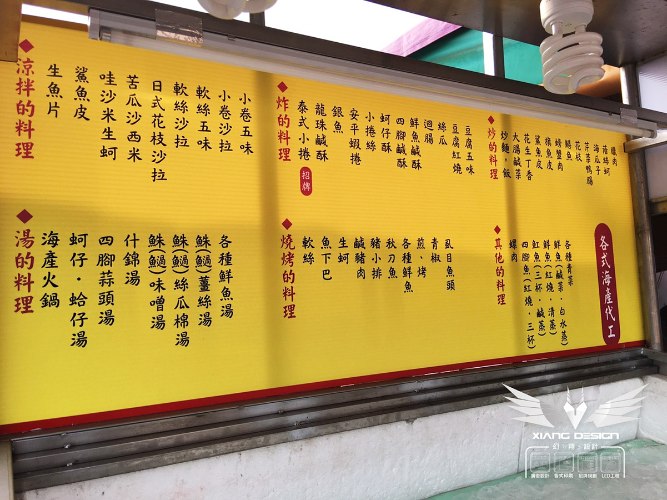 各式海產代工
◆炒的料理
螺肉
蔭絲蚵
海瓜子
芹菜鴨腸
花枝
鱔魚
螃蟹肉
鯊魚皮
花生丁香
大腸鹹菜
炒麵・飯
◆其他的料理
各種青菜
鮮魚(鹹菜・白水蒸)
鮮魚(紅燒・清蒸)
魟魚(三杯・鹹蒸)
四腳魚(紅燒・三杯)
螺肉
◆炸的料理
豆腐五味
豆腐紅燒
絲瓜
迴腸
鮮魚鹹酥
四腳鹹酥
蚵仔酥
小捲絲
安平蝦捲
銀魚
龍珠鹹酥
泰式小捲 招牌
◆燒烤的料理
虱目魚頭
青椒
煎・烤
各種鮮魚
秋刀魚
豬小排
鹹豬肉
生蚵
魚下巴
軟絲
◆涼拌的料理
小卷五味
小卷沙拉
軟絲五味
軟絲沙拉
日式花枝沙拉
苦瓜沙西米
哇沙米生蚵
鯊魚皮
生魚片
◆湯的料理
各種鮮魚湯
鮢(鰪)薑絲湯
鮢(鰪)絲瓜棉湯
鮢(鰪)味噌湯
什錦湯
四腳蒜頭湯
蚵仔・蛤仔湯
海產火鍋
XIANG DESIGN
幻・翔・設計